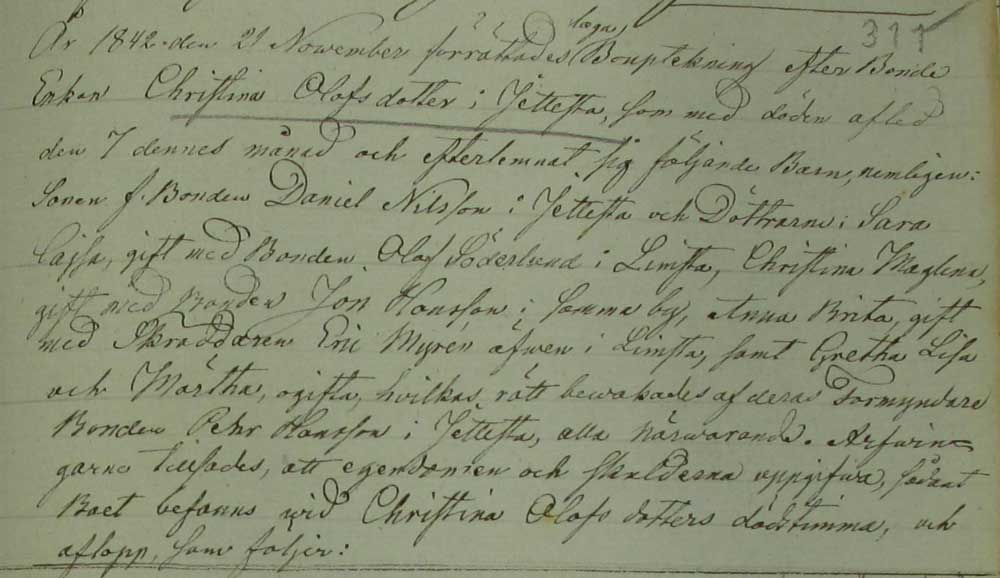 laga,
År 1842 den 21 November förrättades Bouptekning efter Bonde
311
Enkan Christina Olofsdotter i Jettesta, som med döden afled
den 7 dennes månad och efterlemnat sig följande Barn, nemligen:
Sonen f. Bonden Daniel Nilsson i Jettesta och Döttrarne: Sara
Cajsa, gift med Bonden Olof Söderlund i Limsta, Christina Maglena,
gift med Bonden Jon Hansson i samma by, Anna Brita, gift
med Skräddaren Eric Myrén äfwen i Limsta, samt Gretha Lisa
och Märtha, ogifta, hvilkas rätt bewakades af deras Förmyndare
Bonden Pehr Hansson i Jettesta, alla närwarande. Arfwin=
garne tillsades, att egendomen och skulderna uppgifwa, sådant
Boet befanns wid Christina Olofsdotters dödstimma, och
aflopp, som följer: